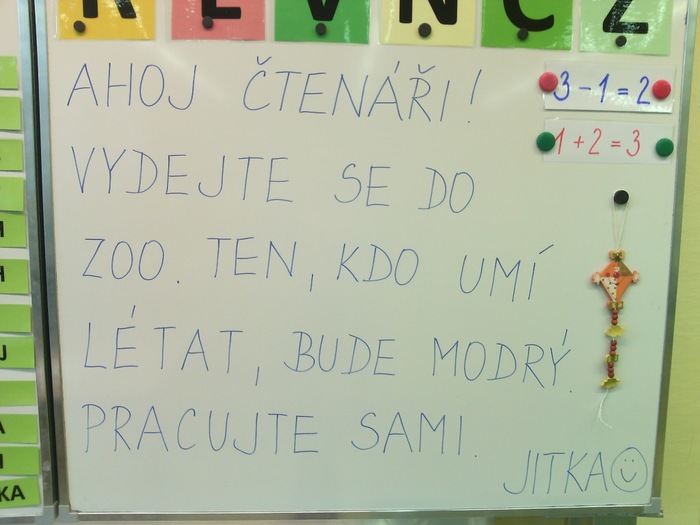 AHOJ ČTENÁŘI!
3 - 1 = 2
1 + 2 = 3
VYDEJTE SE DO
ZOO. TEN, KDO UMÍ
LÉTAT, BUDE MODRÝ.
PRACUJTE SAMI.
JITKA
KA